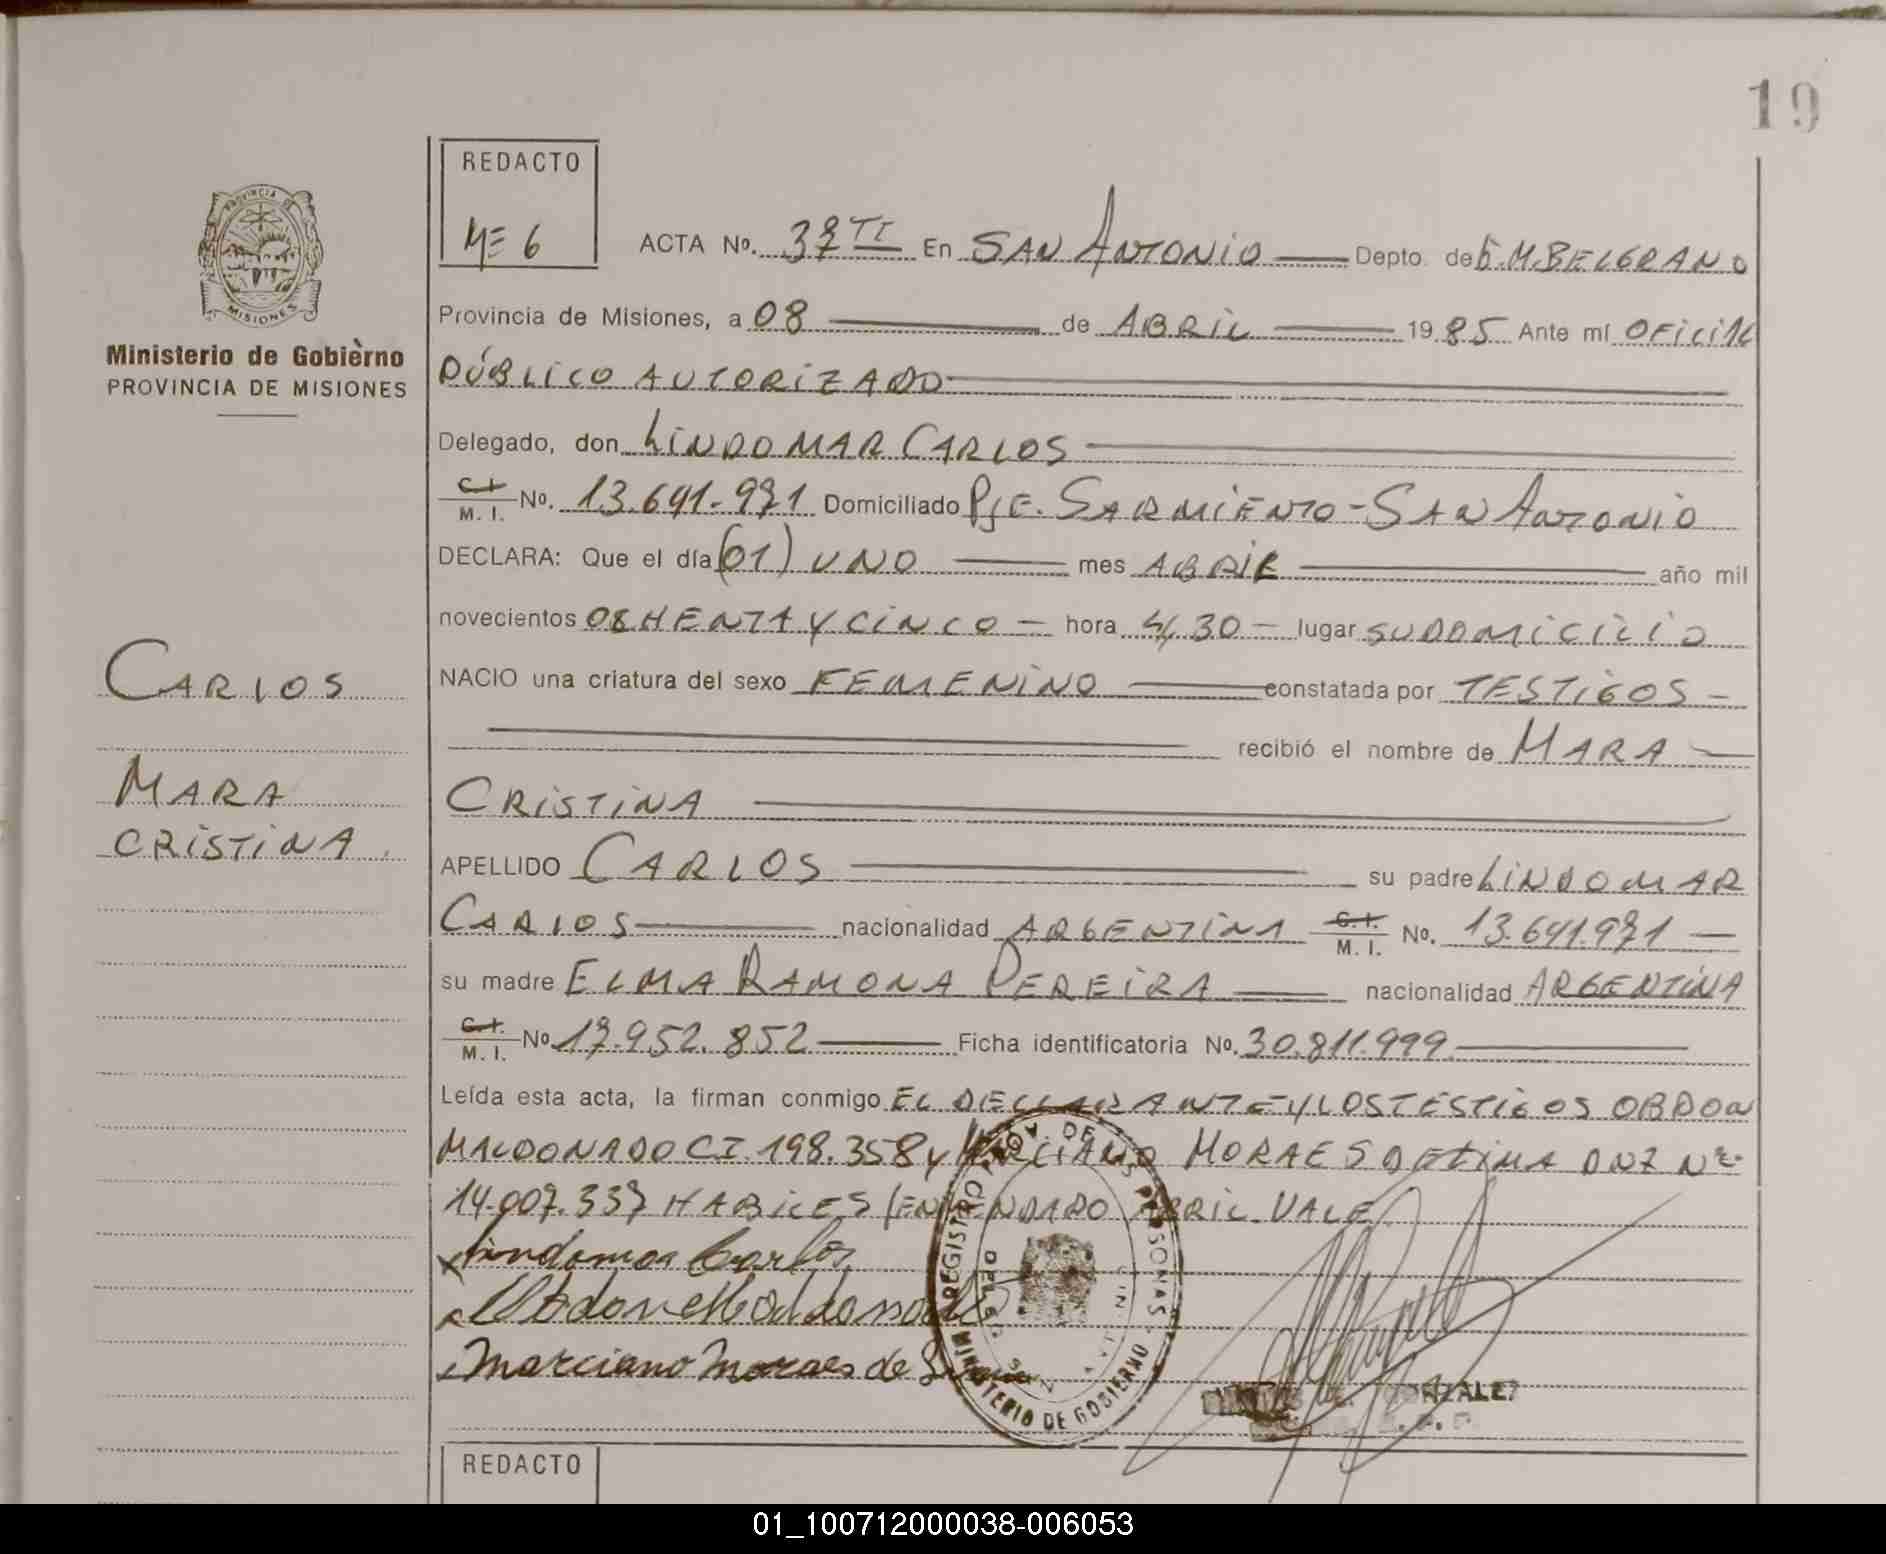 19
REDACTO
ME 6
ACTA No. 37 TI En SAN ANTONIO Depto. de G.M.BELGRANO
PROVINCIA DE
MISIONES
Ministerio de Gobièrno
PROVINCIA DE MISIONES
Provincia de Misiones, a 08 de ABRIL 1985 Ante mí OFICIAL
PÚBLICO AUTORIZADO
Delegado, don LINDOMAR CARLOS
C.I. M. I. No. 13.641.971 Domiciliado PJE. SARMIENTO - SAN ANTONIO
DECLARA: Que el día (01) UNO mes ABRIL año mil
novecientos OCHENTA Y CINCO hora 4,30 lugar SU DOMICILIO
NACIO una criatura del sexo FEMENINO constatada por TESTIGOS
recibió el nombre de MARA
CRISTINA
APELLIDO CARLOS su padre LINDOMAR
CARLOS nacionalidad ARGENTINA C.I. M. I. No. 13.641.971
su madre ELMA RAMONA PEREIRA nacionalidad ARGENTINA
C.I. M. I. No 17.952.852 Ficha identificatoria No. 30.811.999
Leída esta acta, la firman conmigo EL DECLARANTE Y LOS TESTIGOS OBDON
MALDONADO CI. 198.358 y MARCIANO MORAES DE LIMA DNI Nº
14.007.337 HABILES (ENMENDADO ABRIL VALE
CARLOS
MARA
CRISTINA.
Lindomar Carlos
Obdon Maldonado
Marciano Moraes de Lima
REGISTRO PROV. DE LAS PERSONAS
MINISTERIO DE GOBIERNO
GONZALEZ
REDACTO
01_100712000038-006053